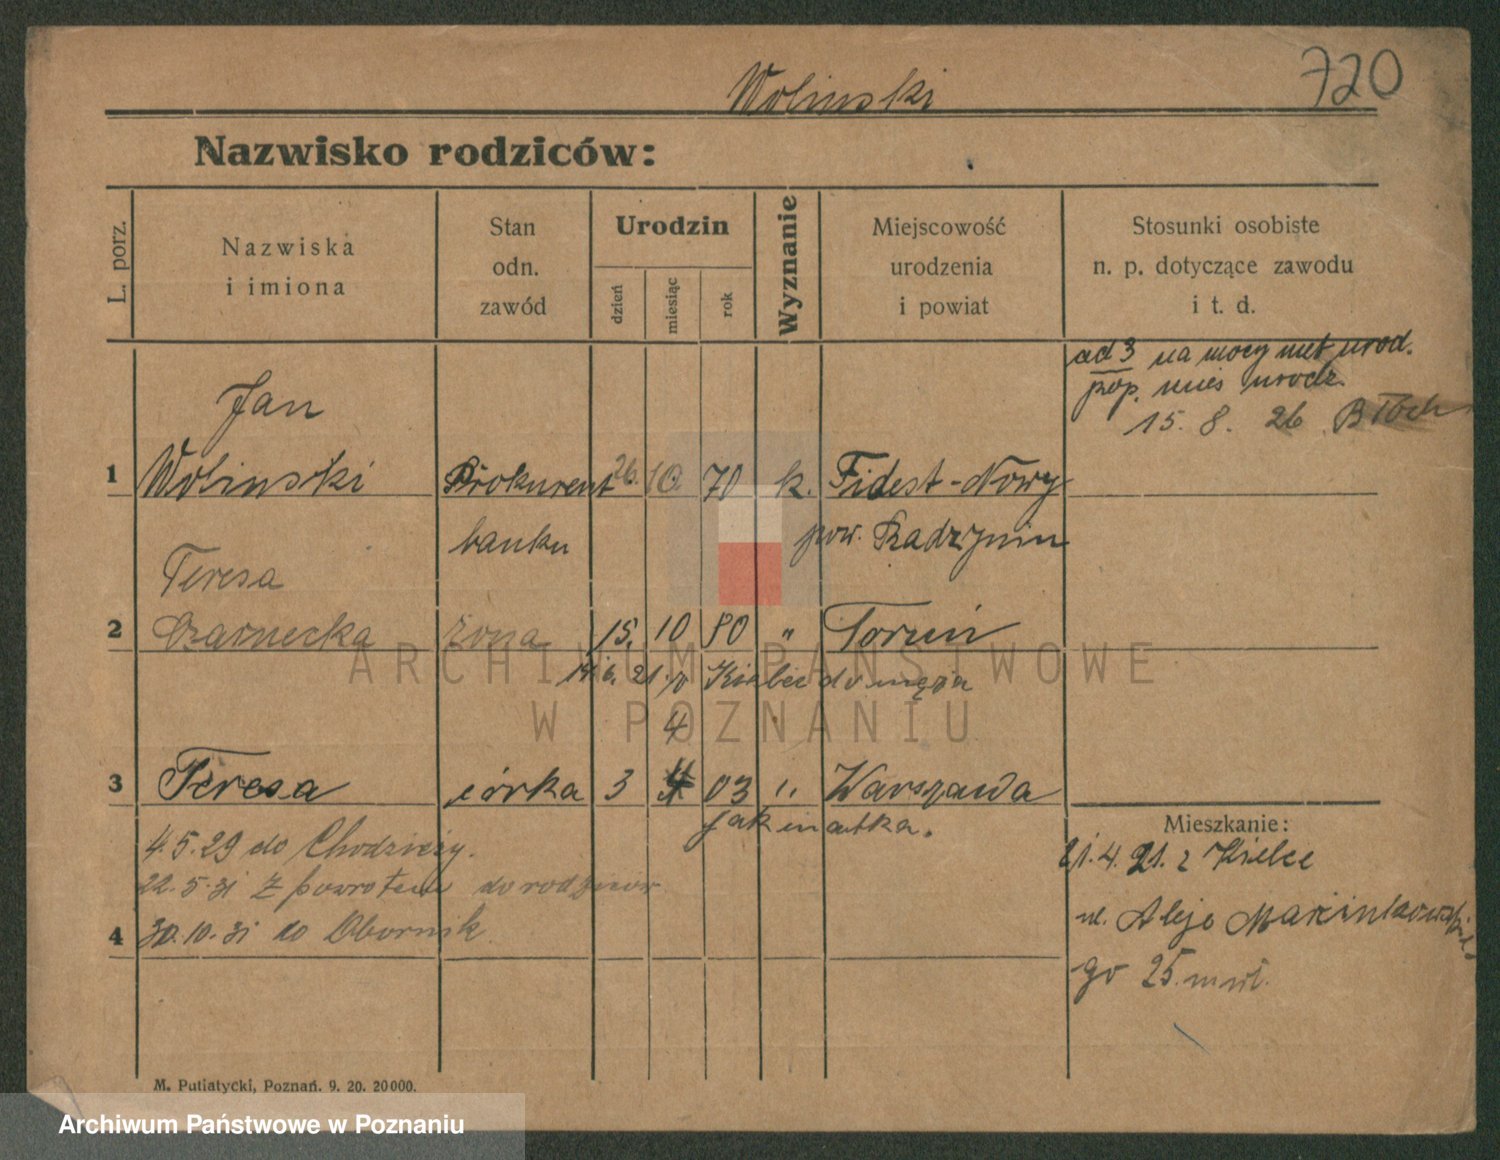 720
Wolinski
Nazwisko rodziców:
L. porz.
Nazwiska
i imiona
Stan
odn.
zawód
Urodzin
dzień
miesiąc
rok
Wyznanie
Miejscowość
urodzenia
i powiat
Stosunki osobiste
n. p. dotyczące zawodu
i t. d.
ad 3 na mocy met urod.
pop. mies urodz.
15. 8. 26
Jan
1 Wolinski Prokurent 26. 10. 70 k. Fidest-Nowy
banku pow. Radzymin
Teresa
2 Czarnecka żona 15. 10 80 " Toruń
21. Kielce do męża
4
3 Teresa córka 3 4 03 " Warszawa
jak matka.
4.5.29 do Chodzieży.
22.5.31 z powrotem do rodziców
4 30.10.31 do Obornik
Mieszkanie:
21.4.21. z Kielce
ul. Aleje Marcinkowskie
go 25.
M. Putiatycki, Poznań. 9. 20. 20000.
ARCHIWUM PAŃSTWOWE
W POZNANIU
Archiwum Państwowe w Poznaniu